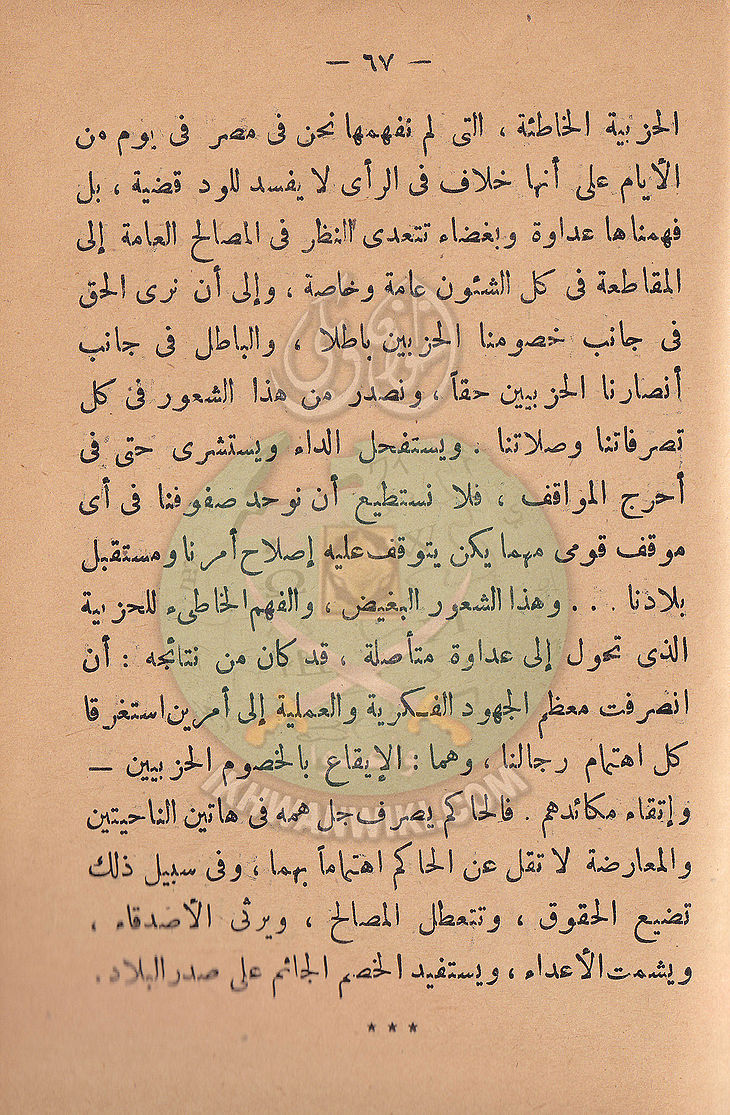 — ٦٧ —
الحزبية الخاطئة ، التى لم نفهمها نحن فى مصر فى يوم من
الأيام على أنها خلاف فى الرأى لا يفسد للود قضية ، بل
فهمناها عداوة وبغضاء تتعدى النظر فى المصالح العامة إلى
المقاطعة فى كل الشئون عامة وخاصة ، وإلى أن نرى الحق
فى جانب خصومنا الحزبين باطلا ، والباطل فى جانب
أنصارنا الحزبيين حقاً ، ونصدر من هذا الشعور فى كل
تصرفاتنا وصلاتنا . ويستفحل الداء ويستشرى حتى فى
أحرج المواقف ، فلا نستطيع أن نوحد صفوفنا فى أى
موقف قومى مهما يكن يتوقف عليه إصلاح أمرنا ومستقبل
بلادنا . . . وهذا الشعور البغيض ، والفهم الخاطىء للحزبية
الذى تحول إلى عداوة متأصلة ، قد كان من نتائجه : أن
انصرفت معظم الجهود الفكرية والعملية إلى أمرين استغرقا
كل اهتمام رجالنا ، وهما : الإيقاع بالخصوم الحزبيين —
وإتقاء مكائدهم . فالحاكم يصرف جل همه فى هاتين الناحيتين
والمعارضة لا تقل عن الحاكم اهتماماً بهما ، وفى سبيل ذلك
تضيع الحقوق ، وتتعطل المصالح ، ويرثى الأصدقاء ،
ويشمت الأعداء ، ويستفيد الخصم الجاثم على صدر البلاد .
* * *
IKHWANWIKI.COM